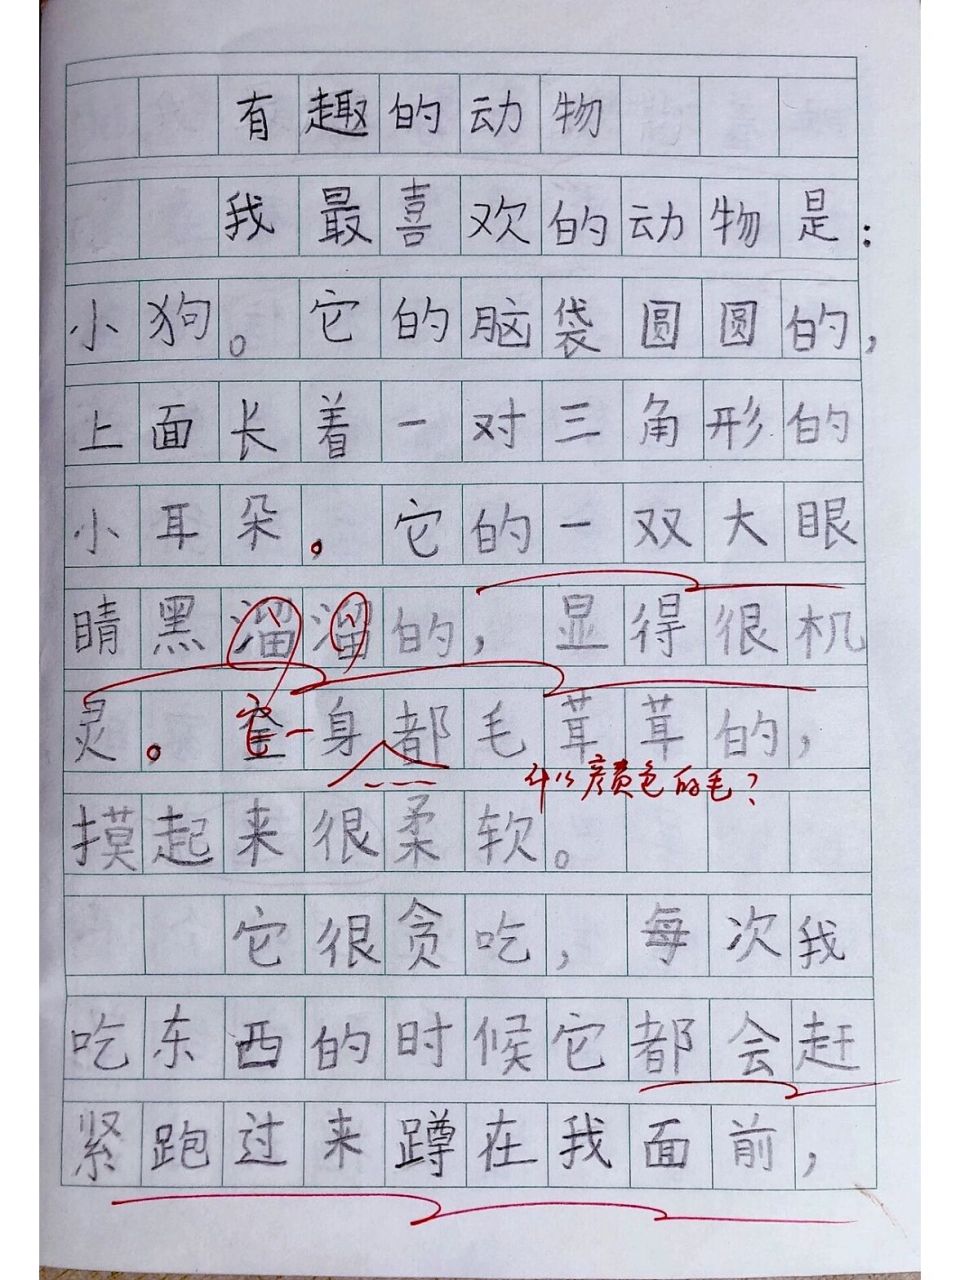 有趣的动物
我最喜欢的动物是：
小狗。它的脑袋圆圆的，
上面长着一对三角形的
小耳朵。它的一双大眼
睛黑溜溜的，显得很机
灵。它一身都毛茸茸的，
什么颜色的毛？
摸起来很柔软。
它很贪吃，每次我
吃东西的时候它都会赶
紧跑过来蹲在我面前，